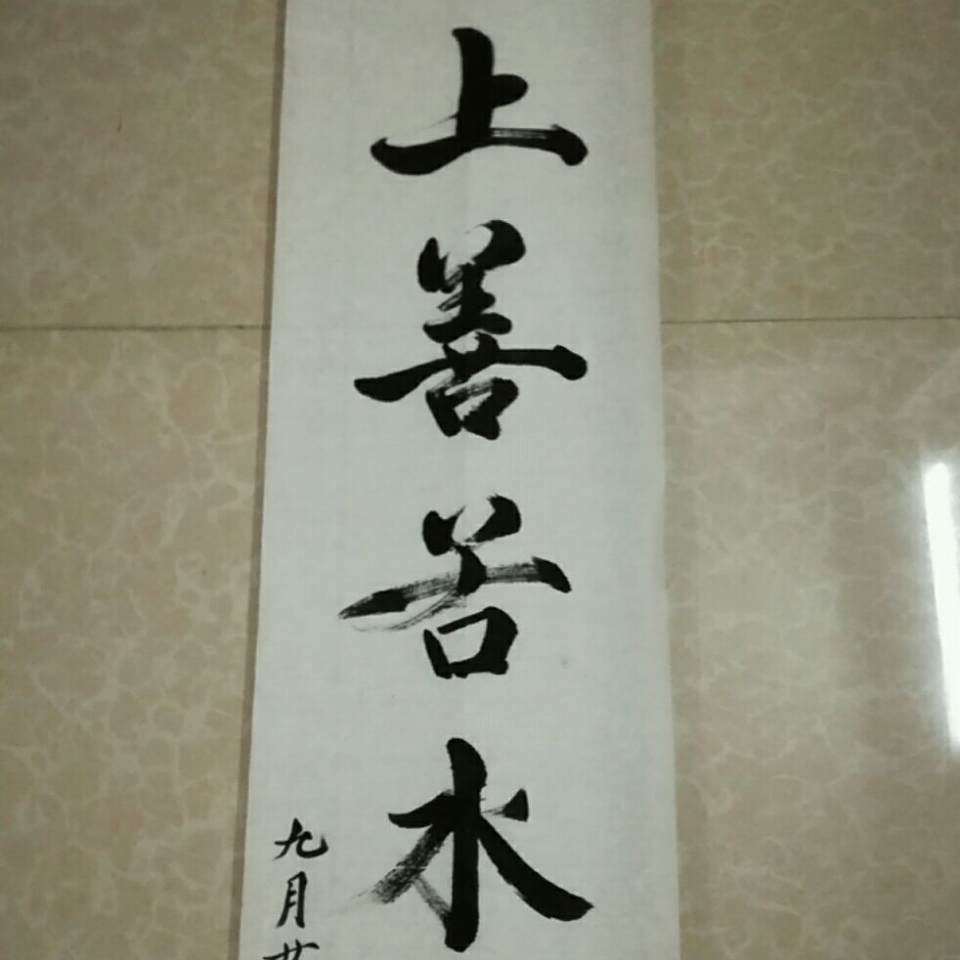 上善若水
九月廿